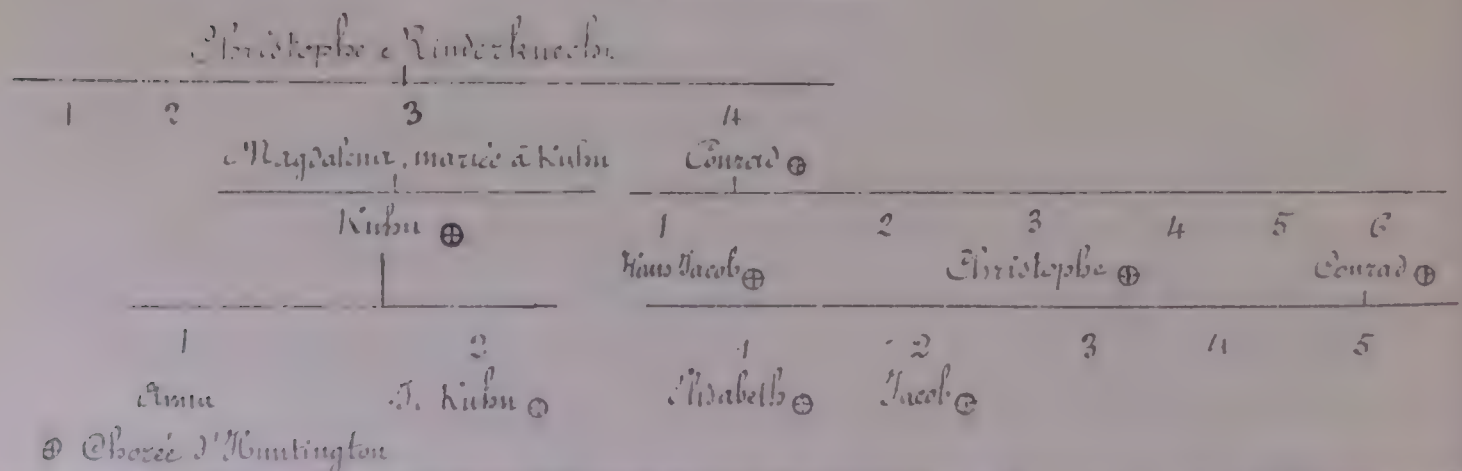 Christophe Rinderknecht
1 2 3 4
Magdalena, mariée à Kuhn Conrad ⊕
Kuhn ⊕ 1 2 3 4 5 6
Hans Jacob ⊕ Christophe ⊕ Conrad ⊕
1 2 1 2 3 4 5
Anna J. Kuhn ⊕ Elisabeth ⊕ Jacob ⊕
⊕ Chorée d'Huntington